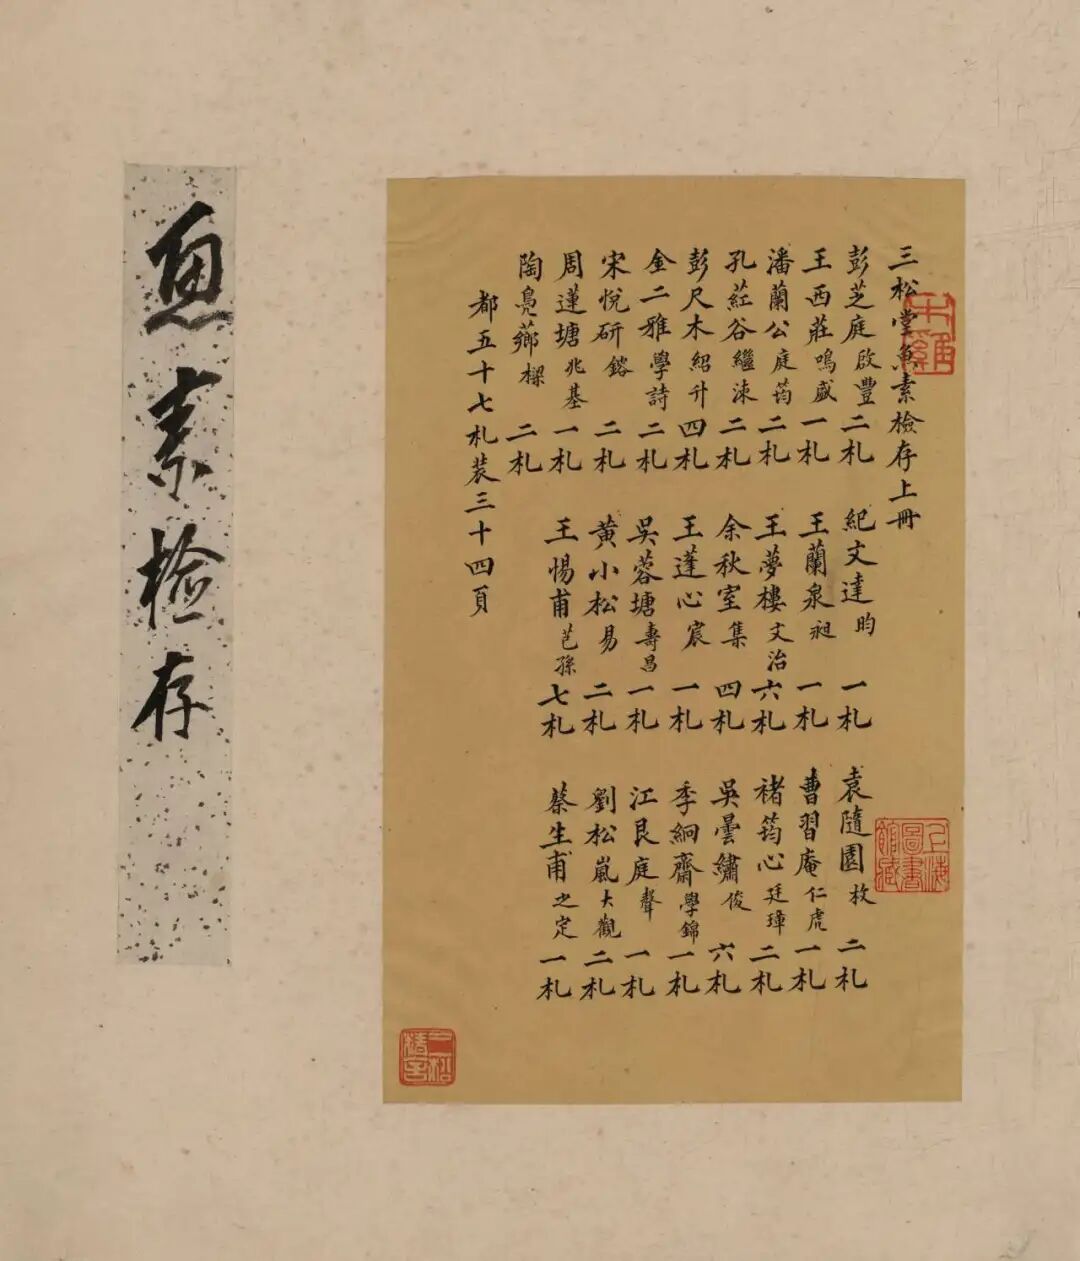 三松堂魚素檢存上冊
彭芝庭啟豐二札 紀文達昀一札 袁隨園枚二札
王西莊鳴盛一札 王蘭泉昶一札 曹習庵仁虎一札
潘蘭公庭筠二札 王夢樓文治六札 褚筠心廷璋二札
孔葒谷繼涑二札 余秋室集四札 吳曇繡俊六札
彭尺木紹升四札 王蓬心宸一札 季絅齋學錦一札
金二雅學詩二札 吳蓉塘壽昌一札 江艮庭聲一札
宋悅研鎔二札 黃小松易二札 劉松嵐大觀二札
周蓮塘兆基一札 王惕甫芑孫七札 蔡生甫之定一札
陶鳧薌樑二札
都五十七札裝三十四頁
上海圖書館藏
魚素检存